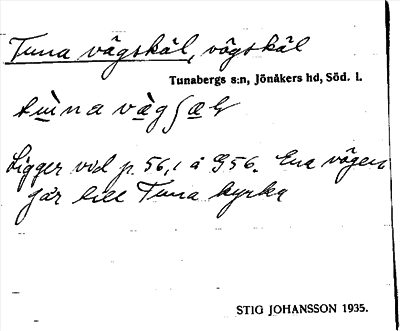 Tuna vägskäl, vägskäl
Tunabergs s:n, Jönåkers hd, Söd. l.
Ligger vid p. 56,1 å G56. Ena vägen
går till Tuna kyrka
STIG JOHANSSON 1935.